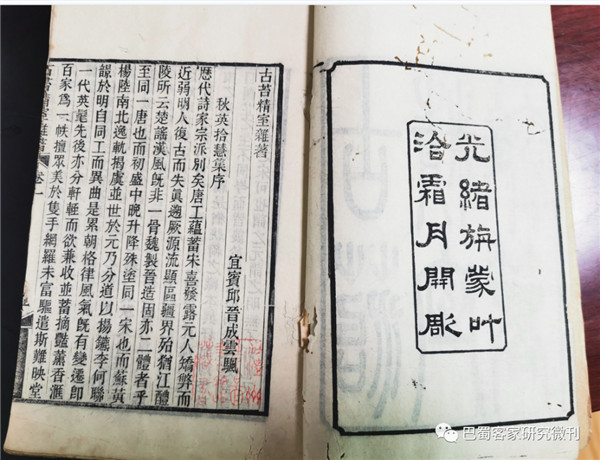 光緒旃蒙叶
洽霜月開彫
古苔精室雜著
秋英拾慧集序
宜賓邱晉成雲颿
歷代詩家宗派別矣唐工蘊蓄宋喜發露元人矯弊而
近弱明人復古而失眞遡厥源流顯區疆界殆猶江醴
陵所云楚謠漢風旣非一骨魏製晉造固亦二體者乎
至同一唐也而初盛中晚升降殊塗同一宋也而蘇黃
楊陸南北逸軌揭虞並世於元乃分道以揚鑣李何聯
韻於明自同工而異曲是累朝格律風氣旣有變遷卽
一代英髦先後亦分軒輊而欲兼收並蓄摘艷薰香滙
百家爲一帙擅眾美於隻手網羅未富驅遣斯難映堂
古苔精室雜著 卷一
巴蜀客家研究微刊